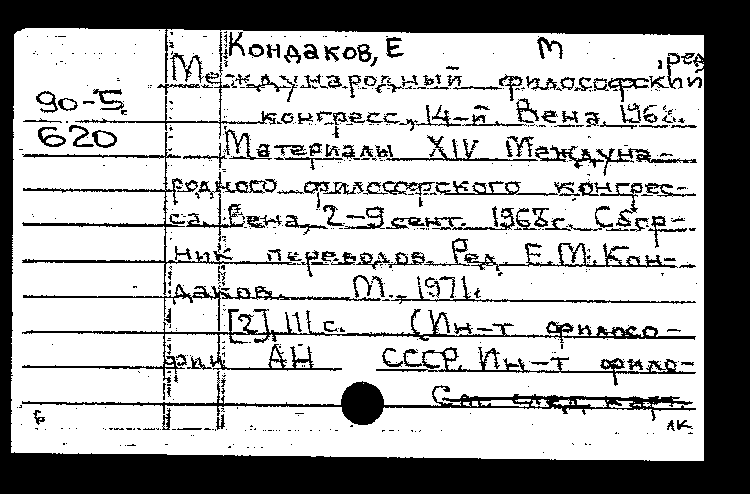 Кондаков, Е М , ред
Международный философский
90-5
конгресс, 14-й. Вена. 1968.
620
Материалы XIV Междуна-
родного философского конгрес-
са. Вена, 2-9 сент. 1968 г. Сбор-
ник переводов. Ред. Е.М. Кон-
даков. М., 1971.
[2], 111 с. (Ин-т филосо-
фии АН СССР. Ин-т фило-
См. след. карт.
Б
лк